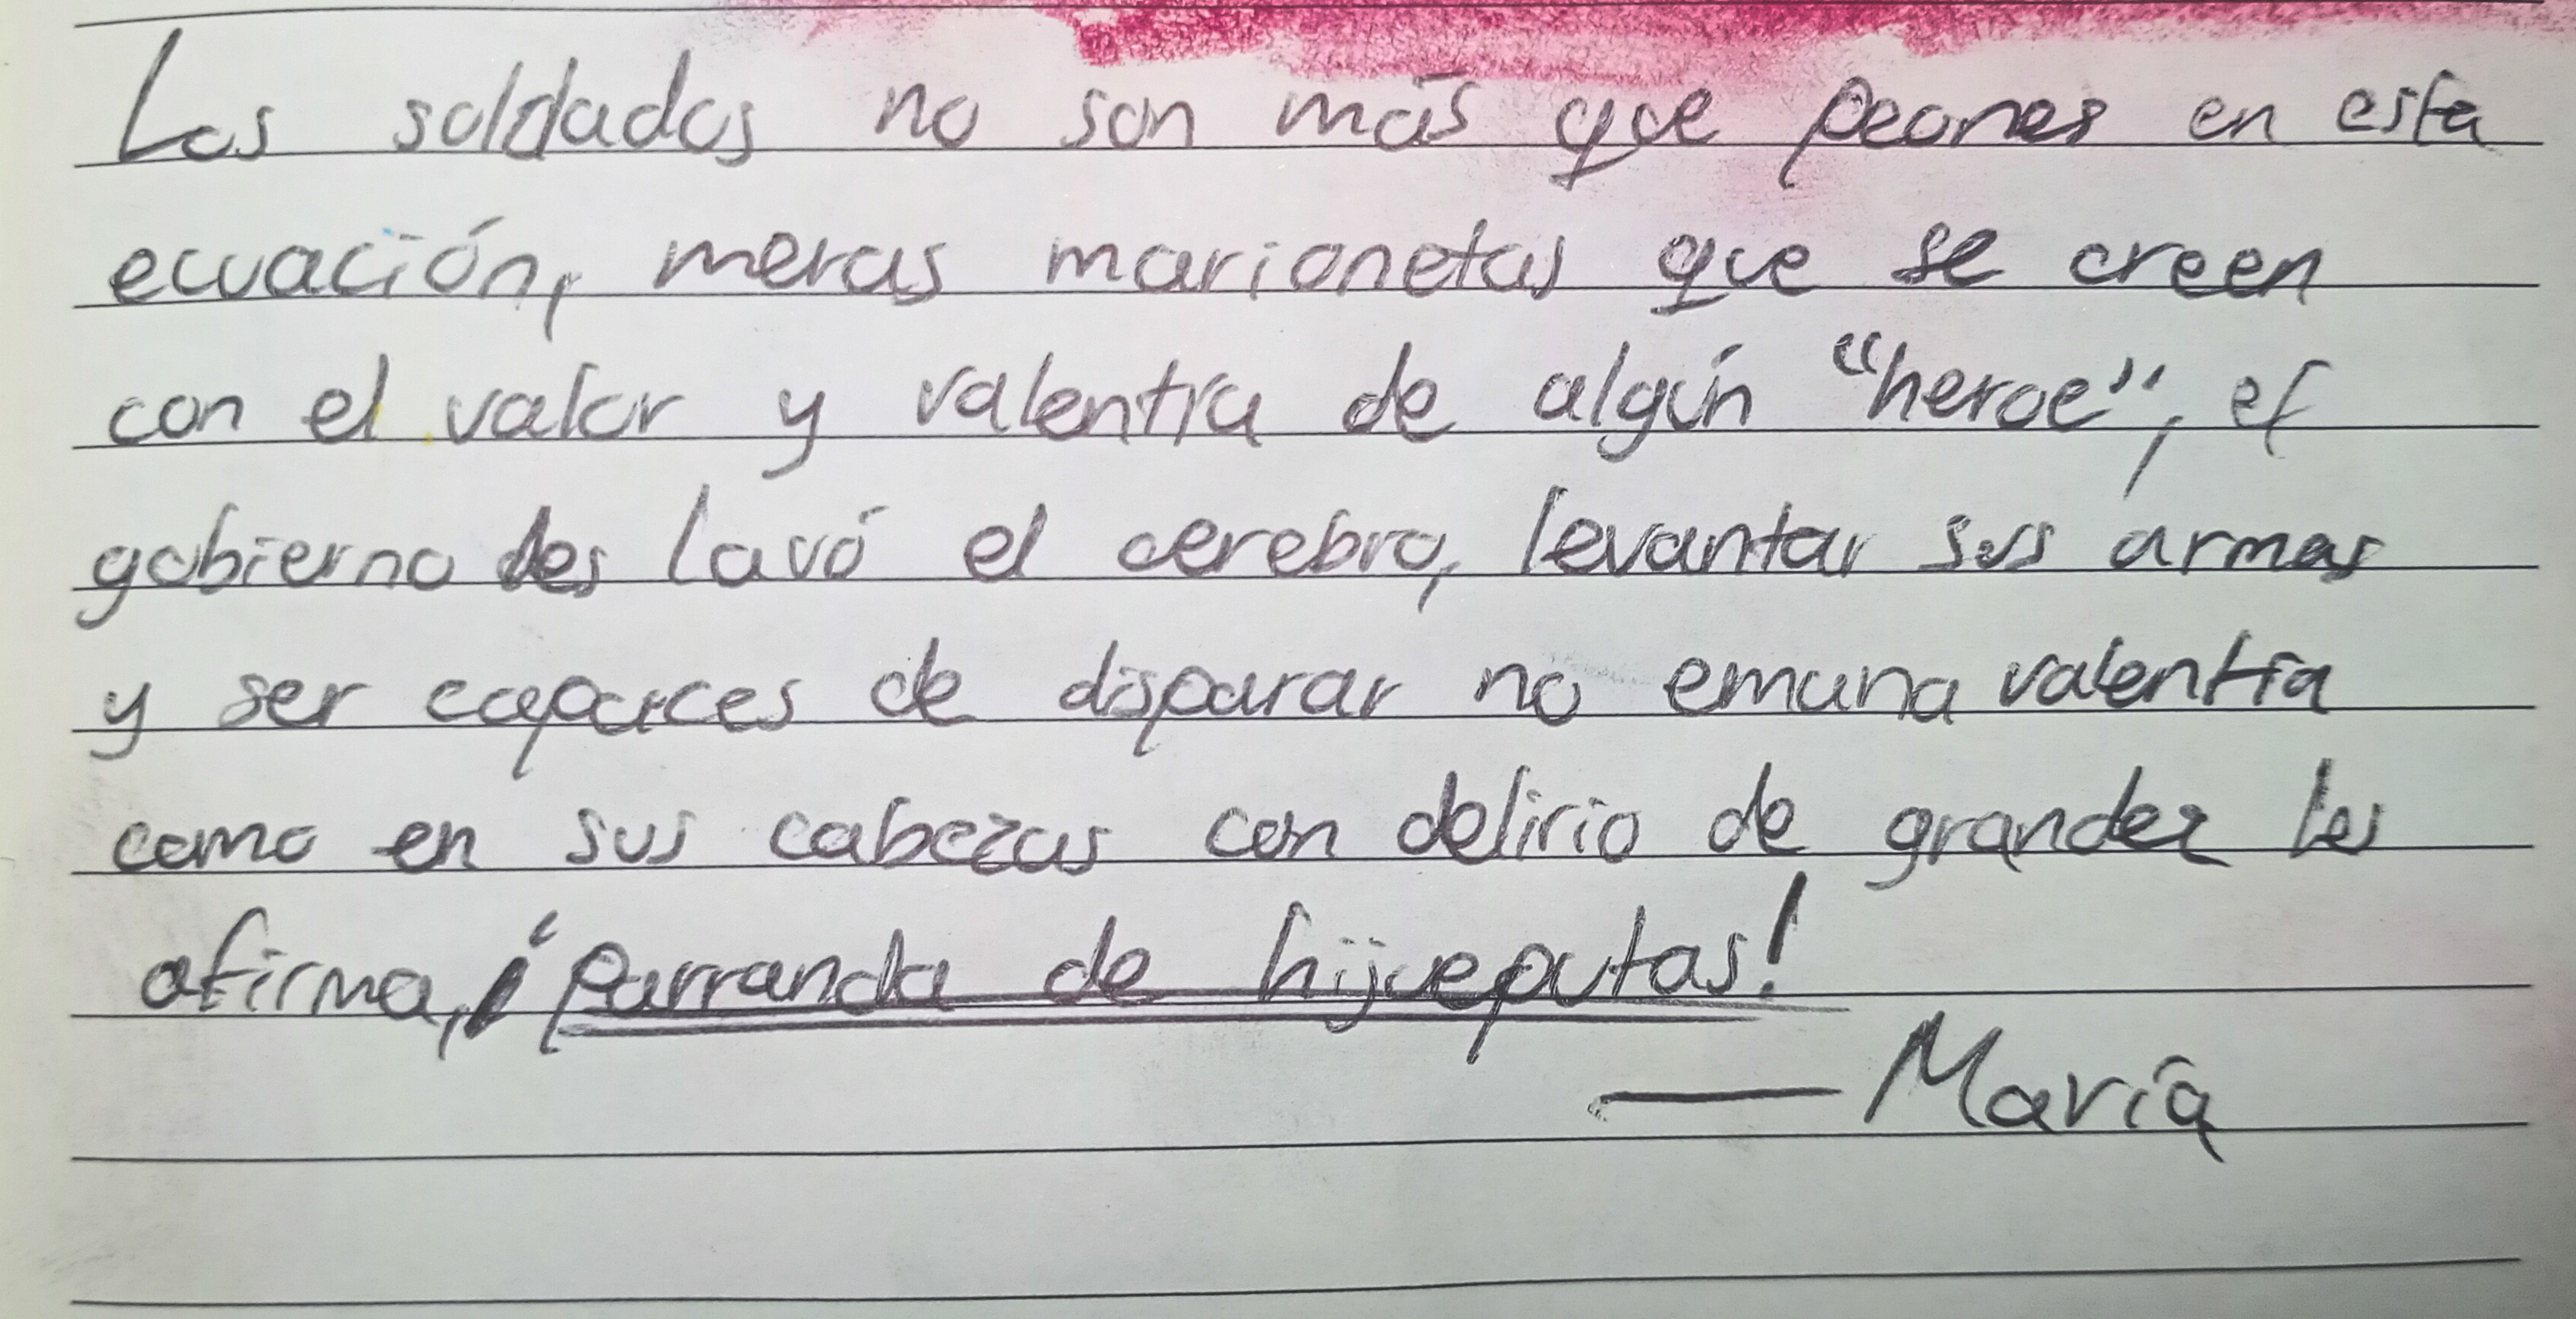 Los soldados no son más que peones en esta
ecuación, meras marionetas que se creen
con el valor y valentía de algún "heroe", el
gobierno les lavó el cerebro, levantar sus armas
y ser capaces de disparar no emana valentía
como en sus cabezas con delirio de grandez les
afirma, ¡Parranda de hijueputas!
— María